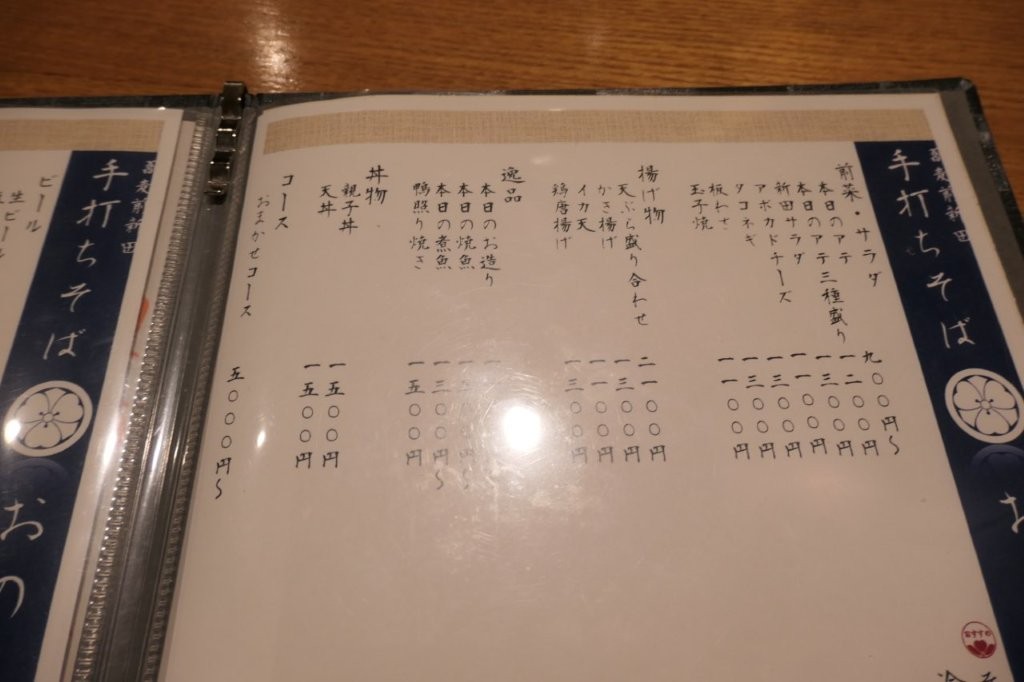 蕎麦前新田
手打ちそば
お
おすすめ
前菜・サラダ
本日のアテ 九〇〇円〜
本日のアテ三種盛り 一二〇〇円
新田サラダ 一三〇〇円
アボカドチーズ 一一〇〇円
タコネギ 一三〇〇円
板わさ 一三〇〇円
玉子焼 一一〇〇円
揚げ物
天ぷら盛り合わせ 二一〇〇円
かき揚げ 一三〇〇円
イカ天 一一〇〇円
鶏唐揚げ 一三〇〇円
逸品
本日のお造り
本日の焼魚
本日の煮魚 一三〇〇円〜
鴨照り焼き 一五〇〇円
丼物
親子丼 一五〇〇円
天丼 一五〇〇円
コース
おまかせコース 五〇〇〇円〜
蕎麦前新田
手打ちそば
おの
ビール
生ビール